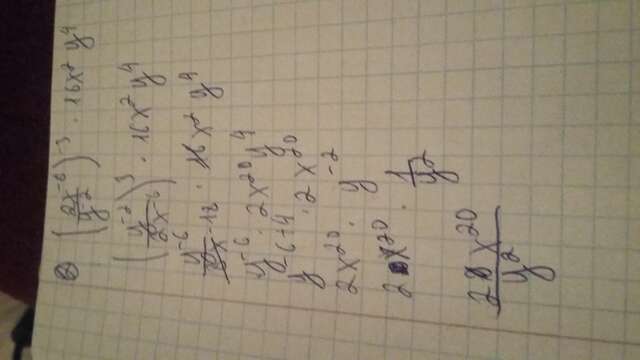 ② (2x⁻⁶/y⁻²)⁻³ · 16x² y⁴
(y⁻²/2x⁻⁶)³ · 16x² y⁴
y⁻⁶/8x⁻¹⁸ · 16x² y⁴
y⁻⁶ · 2x²⁰y⁴
y⁻⁶⁺⁴ · 2x²⁰
2x²⁰ · y⁻²
2x²⁰ · 1/y²
2x²⁰/y²